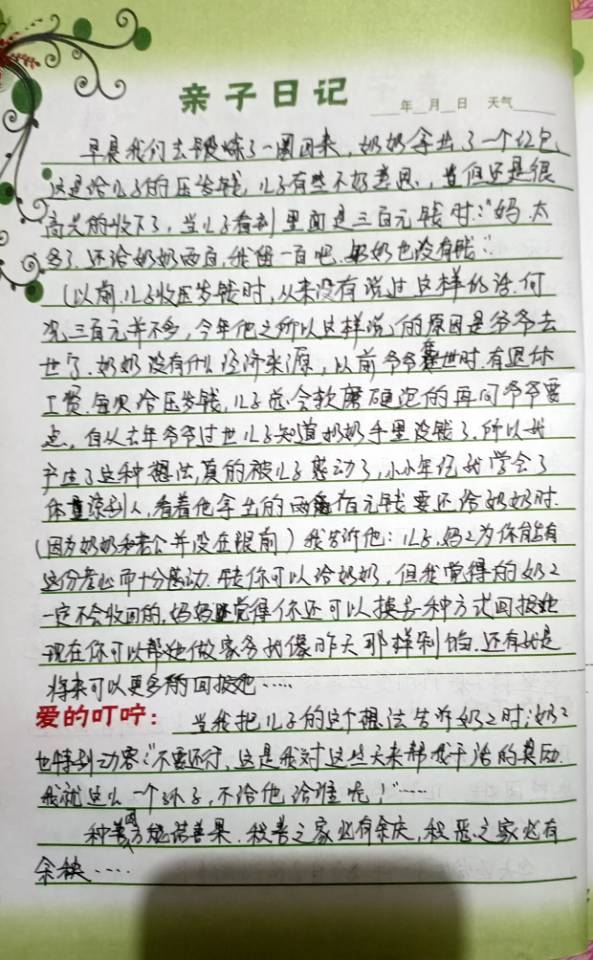 亲子日记
年 月 日 天气
早晨我们去锻炼了一圈回来，奶奶拿出了一个红包，
这是给儿子的压岁钱，儿子有些不好意思，当但还是很
高兴的收下了，当儿子看到里面是三百元钱时："妈，太
多了，还给奶奶两百，我留一百吧，奶奶也没有钱"
（以前儿子收压岁钱时，从来没有说过这样的话，何
况三百元并不多，今年他之所以这样说，的原因是爷爷去
世了，奶奶没有什么经济来源，以前爷爷在世时，有退休
工资，每次给压岁钱，儿子总会软磨硬泡的再问爷爷要
点，自从去年爷爷过世儿子知道奶奶手里没钱了，所以就
产生了这种想法，真的被儿子感动了，小小年纪就学会了
体谅别人，看着他拿出的两百元钱要还给奶奶时，
（因为奶奶和老公并没在眼前）我告诉他：儿子，妈々为你能有
这份孝心而十分感动，钱你可以给奶奶，但我觉得的奶々
一定不会收回的，妈妈觉得你还可以换去一种方式回报她
现在你可以帮她做家务就像昨天那样剁馅，还有就是
将来可以更多的回报她……
爱的叮咛：当我把儿子的这个想法告诉奶々时：奶々
也特别动容："不要还了，这是我对这些天来帮我干活的奖励，
我就这么一个孙子，不给他给谁呢！"……
种善因方能诺善果，积善之家必有余庆，积恶之家必有
余殃……